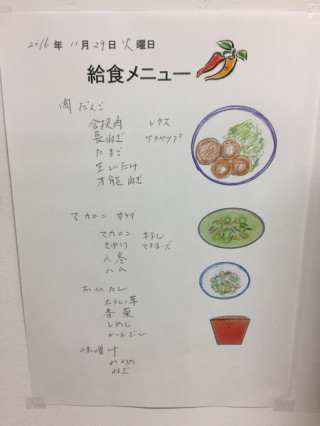 2016年 11月 29日 火曜日
給食メニュー
肉だんご
合挽肉 レタス
長ねぎ ケチャップ
たまご
生しいたけ
万能ねぎ
マカロニサラダ
マカロニ
きゅうり マヨネーズ
人参
ハム
おひたし
ホウレン草
春菊
しめじ
かつおぶし
味噌汁
わかめ
ねぎ